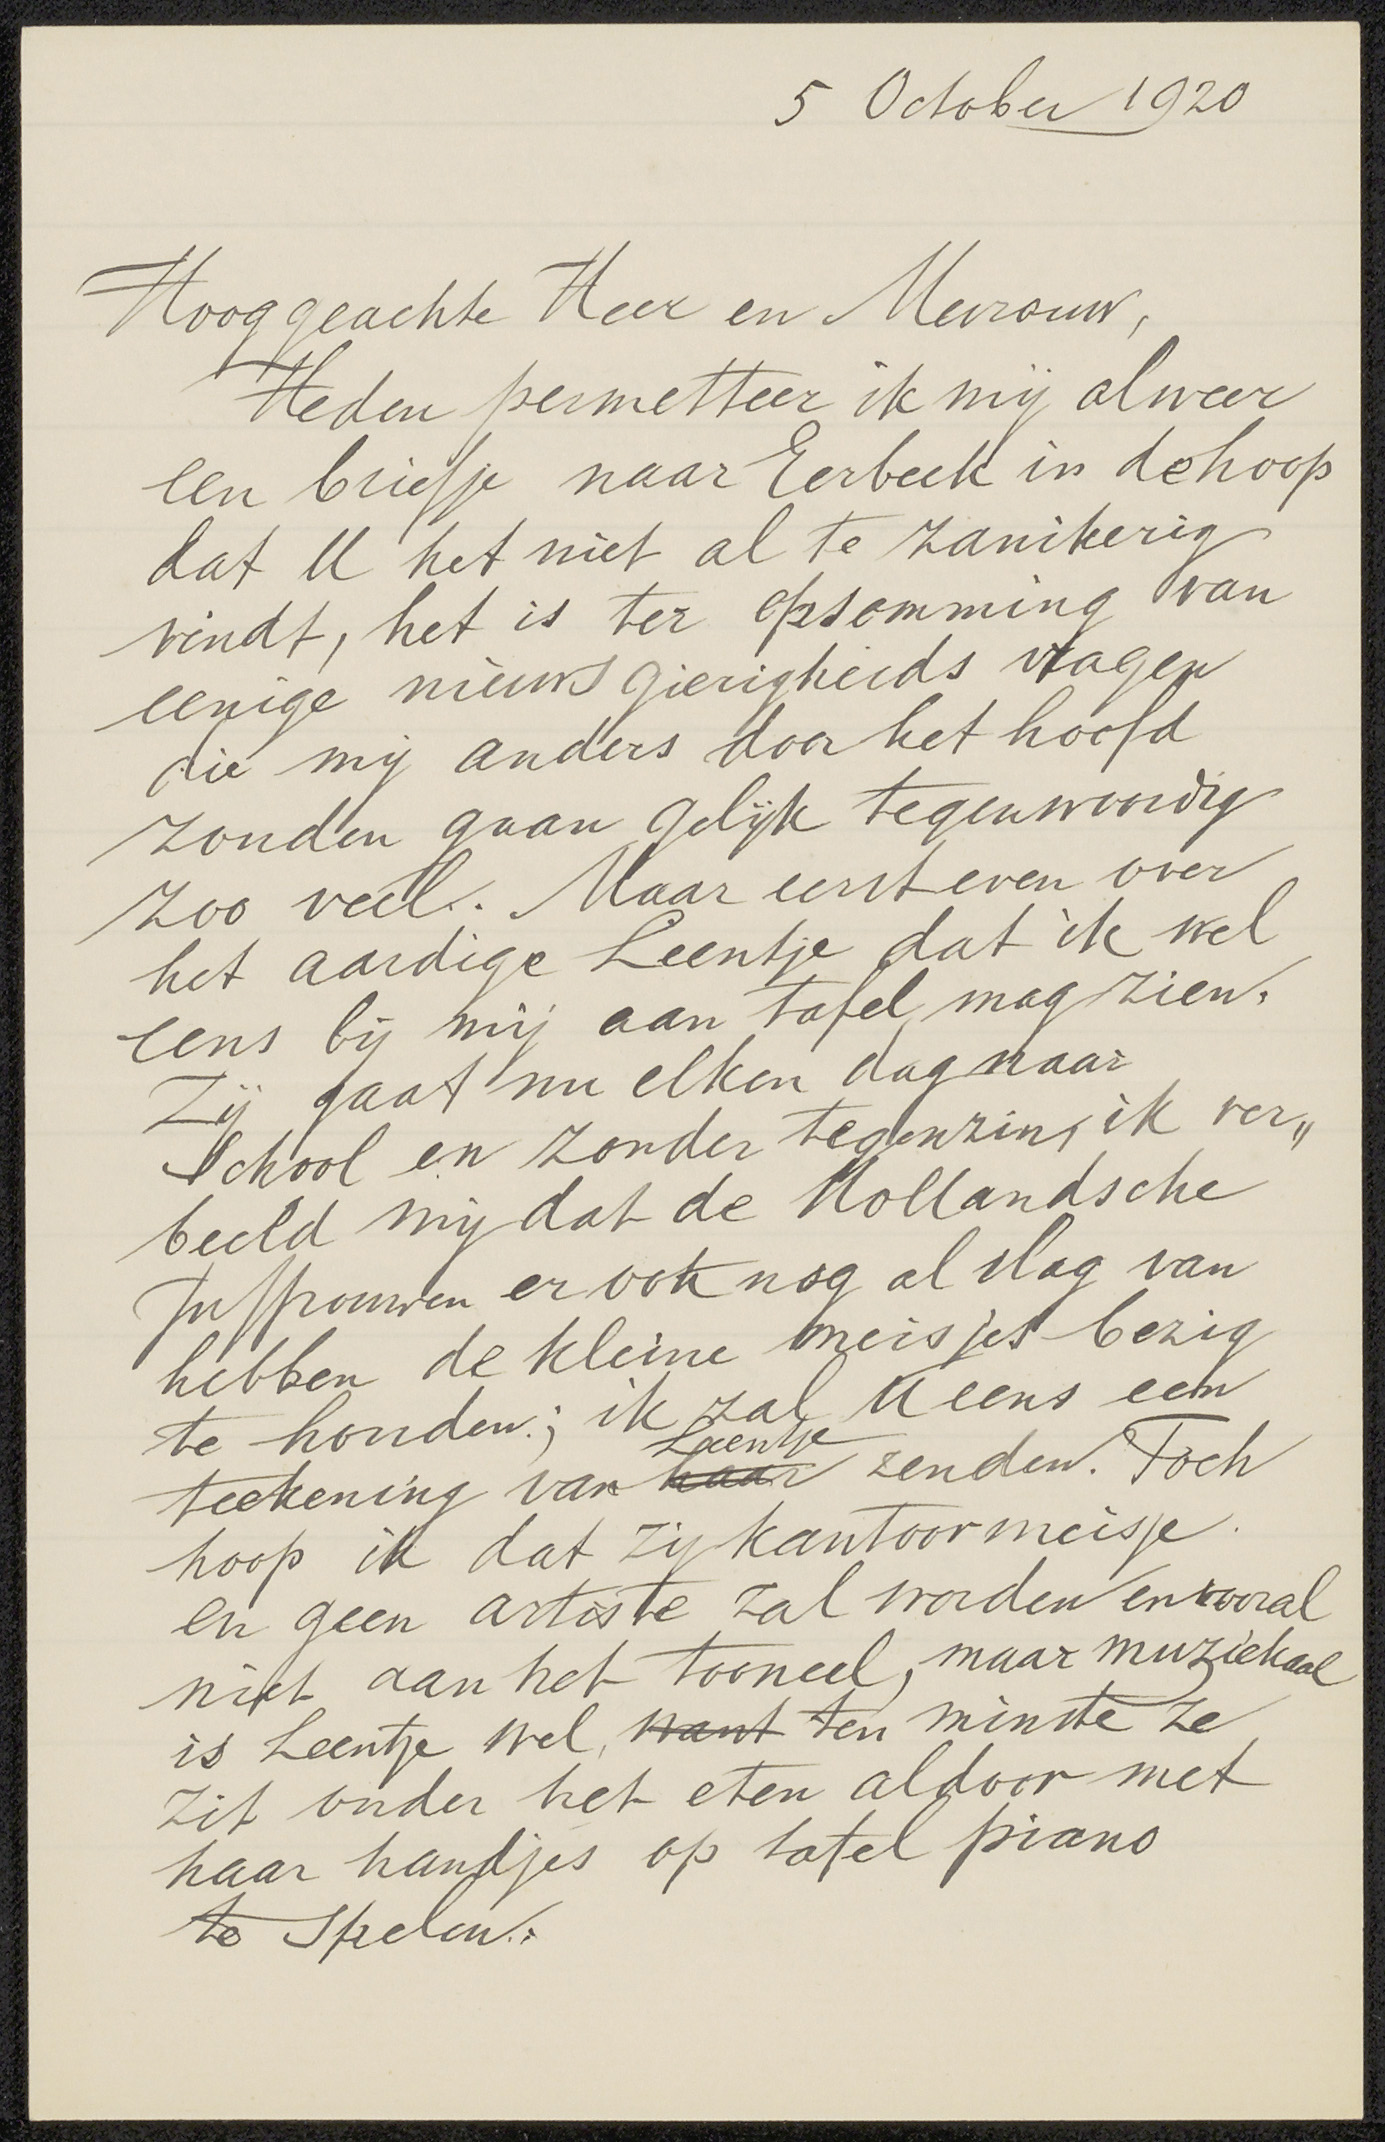 5 October 1920
Hooggeachte Heer en Mevrouw,
Heden permetteer ik mij alweer
een briefje naar Eerbeek in de hoop
dat U het niet al te zanikerig
vindt, het is ter opsomming van
eenige nieuwsgierigheids vragen
die mij anders door het hoofd
zouden gaan gelijk tegenwoordig
zoo veel. Maar eerst even over
het aardige Leentje dat ik wel
eens bij mij aan tafel mag zien.
Zij gaat nu elken dag naar
School en zonder tegenzin, ik ver„
beeld mij dat de Hollandsche
Juffrouwen er ook nog al slag van
hebben de kleine meisjes bezig
te houden; ik zal U eens een
teekening van haar Leentje zenden. Toch
hoop ik dat zij kantoormeisje
en geen artiste zal worden en vooral
niet aan het tooneel, maar muziekaal
is Leentje wel, want ten minste ze
zit onder het eten aldoor met
haar handjes op tafel piano
te spelen.